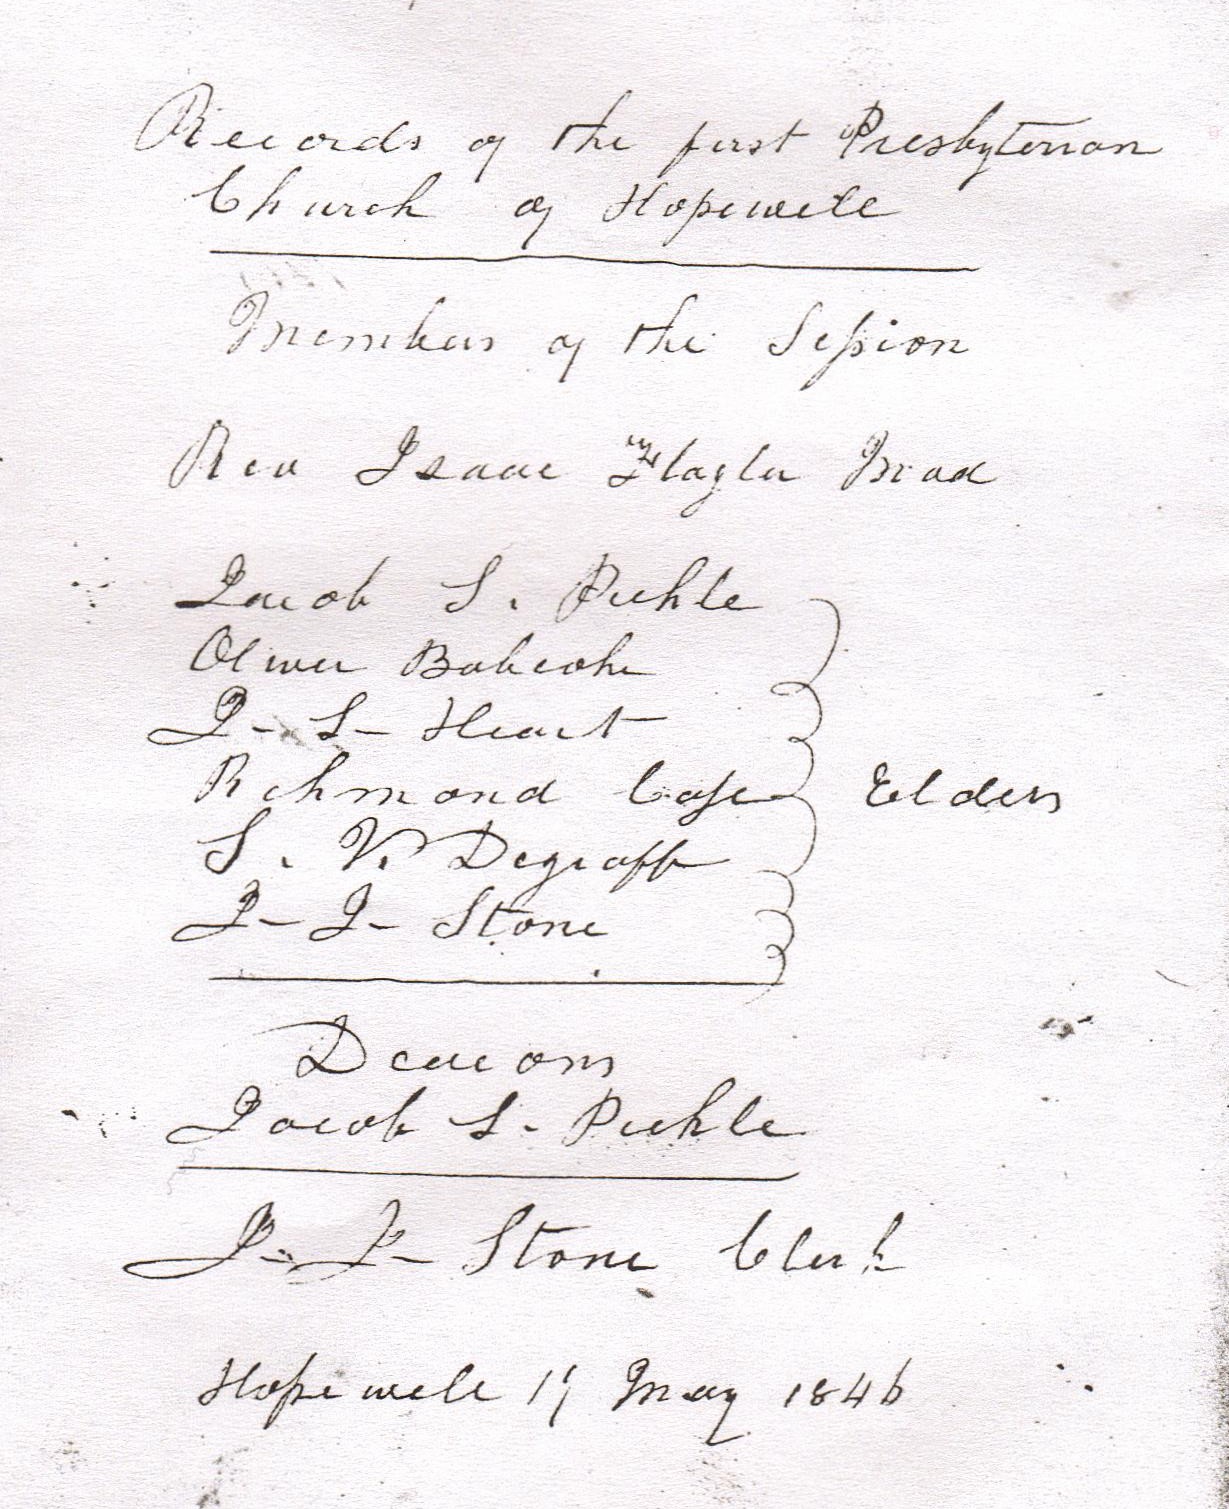 Records of the first Presbyterian
Church of Hopewell
Members of the Session
Rev Isaac Flagler Mod
Jacob S. Pickle
Oliver Babcoke
J- S- Heart
Richmond Case
S. V. Degraff
J- J- Stone
Elders
Deacons
Jacob S. Pickle
J- J- Stone Clerk
Hopewell May 1846